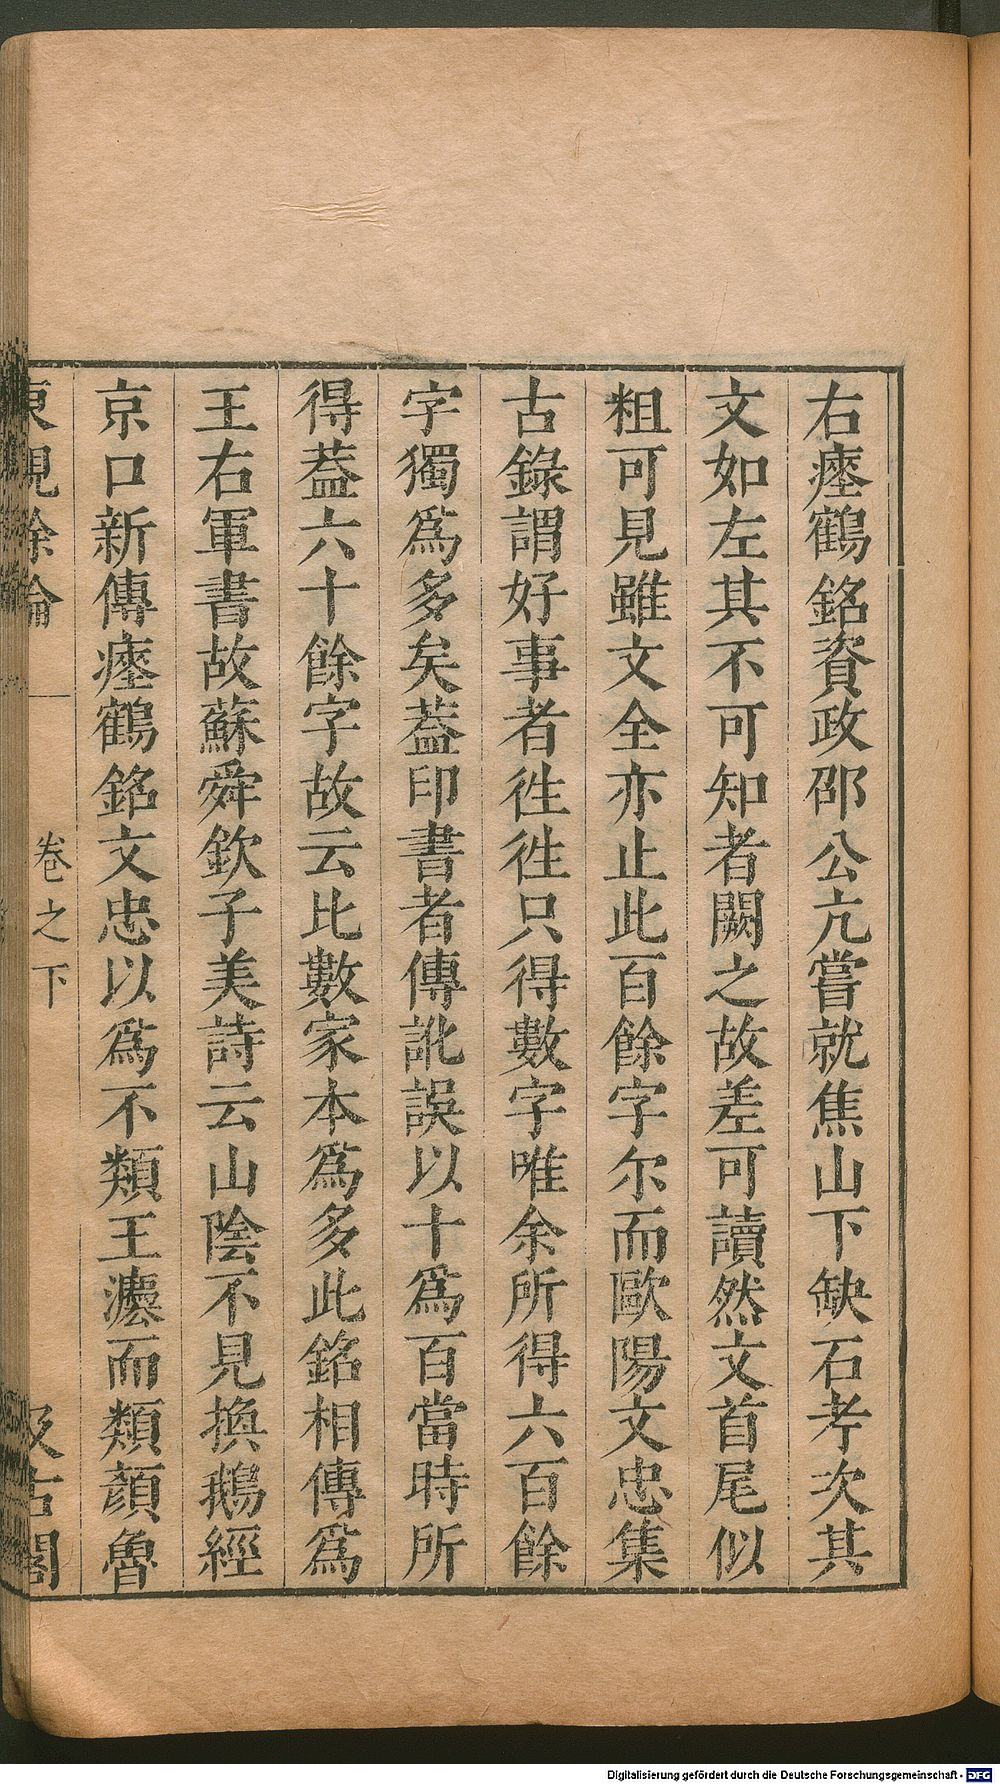 右瘞鶴銘資政邵公亢嘗就焦山下缺石考次其
文如左其不可知者闕之故差可讀然文首尾似
粗可見雖文全亦止此百餘字尔而歐陽文忠集
古錄謂好事者徃徃只得數字唯余所得六百餘
字獨爲多矣葢印書者傳訛誤以十爲百當時所
得葢六十餘字故云比數家本爲多此銘相傳爲
王右軍書故蘇舜欽子美詩云山陰不見換鵝經
京口新傳瘞鶴銘文忠以爲不類王灋而類顏魯
東觀餘論 卷之下 汲古閣
Digitalisierung gefördert durch die Deutsche Forschungsgemeinschaft - DFG